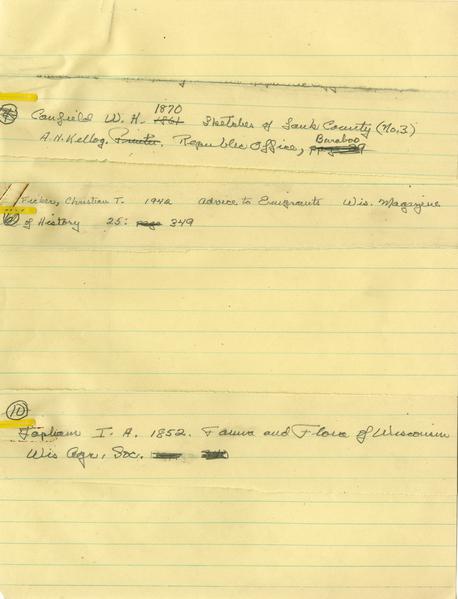 1870
Canfield W. H. 1861 Sketches of Sauk County (No. 3)
Baraboo
A. H. Kellog, Printer. Republic Office,
Ficker, Christian T. 1942 Advice to Emigrants Wis. Magazine
of History 25: page 349
10
Lapham I. A. 1852. Fauna and Flora of Wisconsin
Wis Agr. Soc.